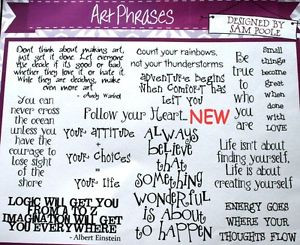 Art Phrases
DESIGNED BY
SAM POOLE
Don't think about making art,
just get it done. Let everyone
else decide if it's good or bad,
whether they love it or hate it.
While they are deciding, make
even more art
- Andy Warhol
count your rainbows,
not your thunderstorms
adventure begins
when comfort has
left you
Be
true
to
who
you
are
Small
things
become
great
when
done
with
LOVE
You can
never cross
the ocean
unless you
have the
courage to
lose sight
of the
shore
Follow your Heart
NEW
your attitude
+
your choices
=
your life
ALWAYS
believe
that
something
wonderful
is about
to happen
Life isn't about
finding yourself.
Life is about
creating yourself
LOGIC WILL GET YOU
FROM A TO Z
IMAGINATION WILL GET
YOU EVERYWHERE
- Albert Einstein
ENERGY GOES
WHERE YOUR
THOUGHTS FLOW